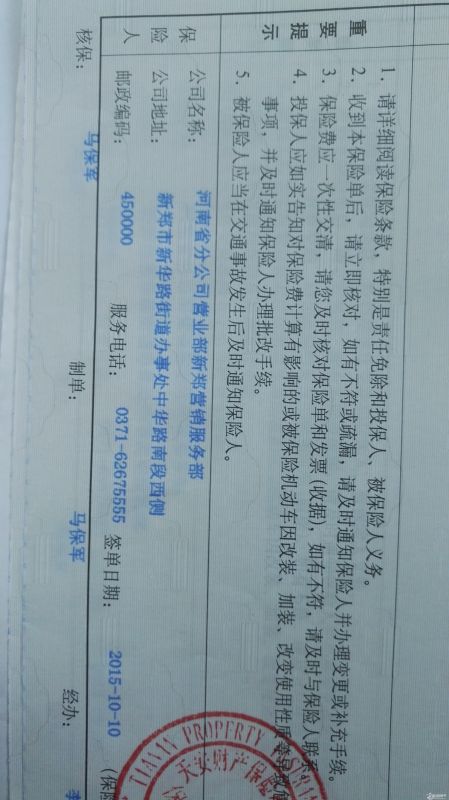 重要提示
1. 请详细阅读保险条款，特别是责任免除和投保人、被保险人义务。
2. 收到本保险单后，请立即核对，如有不符或疏漏，请及时通知保险人并办理变更或补充手续。
3. 保险费应一次性交清，请您及时核对保险单和发票(收据)，如有不符，请及时与保险人联系。
4. 投保人应如实告知对保险费计算有影响的或被保险机动车因改装、加装、改变使用性质等导致
事项，并及时通知保险人办理批改手续。
5. 被保险人应当在交通事故发生后及时通知保险人。
保险人
公司名称： 河南省分公司营业部新郑营销服务部
公司地址： 新郑市新华路街道办事处中华路南段西侧
邮政编码： 450000 服务电话： 0371-62675555 签单日期： 2015-10-10 (保险
核保： 马保军 制单： 马保军 经办： 李
TIANAN PROPERTY
天安财产保险